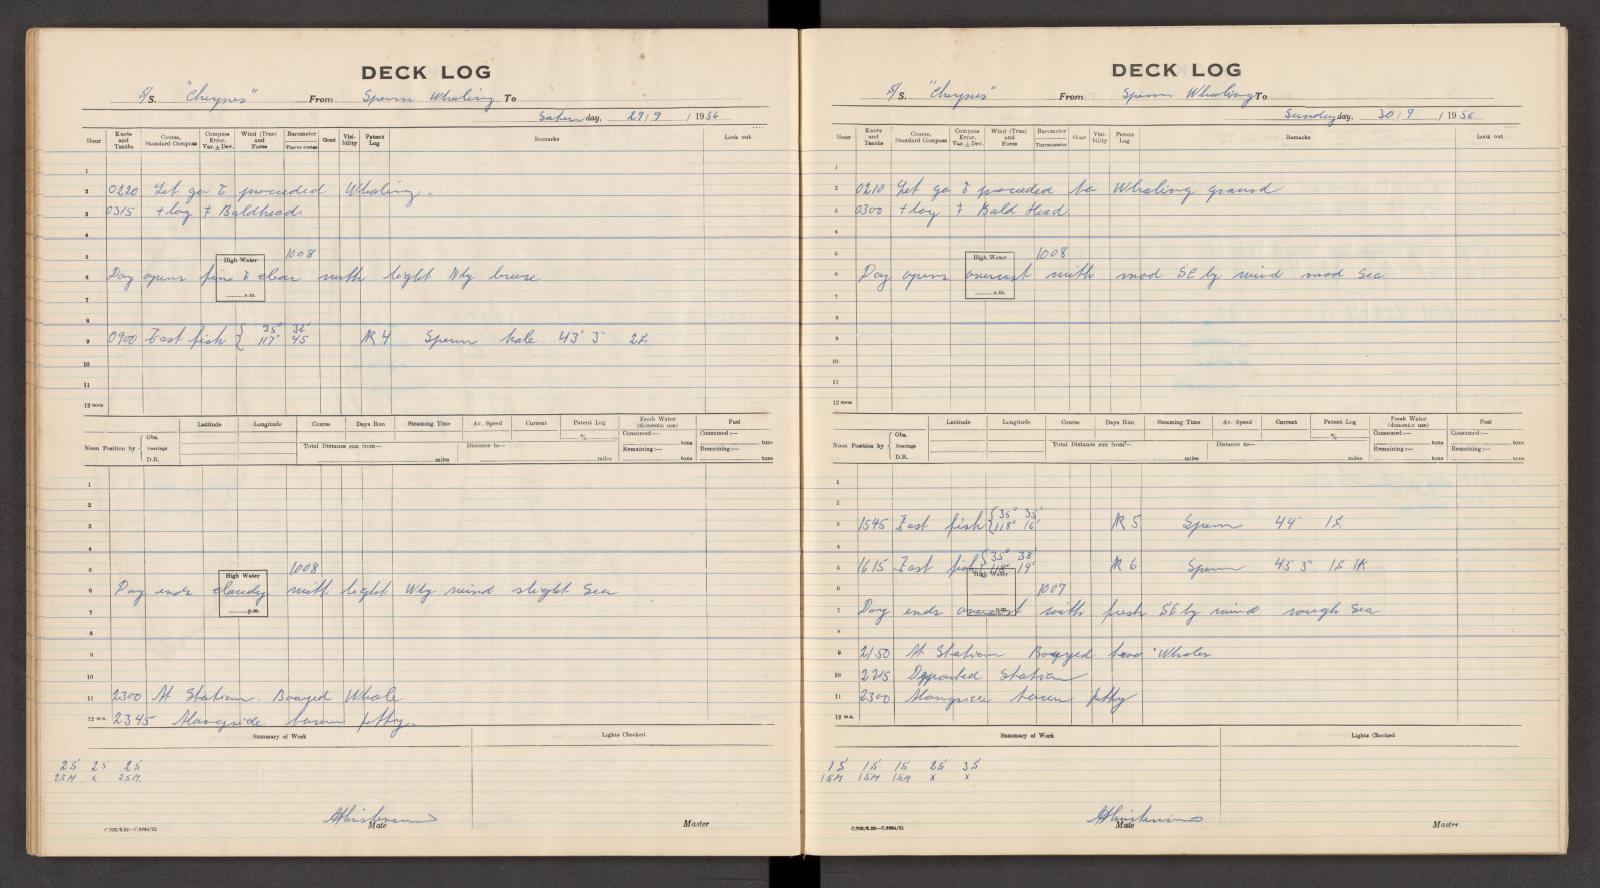 DECK LOG
S/S. "Cheynes" From Sperm Whaling To
Saturday, 29/9/1956
Hour
Knots and Tenths
Course, Standard Compass
Compass Error. Var. ± Dev.
Wind (True) and Force
Barometer
Thermometer
Cloud
Visibility
Patent Log
Remarks
Look out
1
2 0220 Let go & proceeded Whaling.
3 0315 + log ∓ Baldhead.
4
5 1008
High Water
6 Day opens fine & clear with light Wly breeze
a.m.
7
8
35° 32'
9 0900 East fish { 117° 45 IR 4 Sperm male 43' 3" 2S.
10
11
12 noon
Latitude Longitude Course Days Run Steaming Time Av. Speed Current Patent Log Fresh Water (domestic use) Fuel
%
Noon Position by { Obs. Bearings D.R.
Total Distance run from— miles
Distance to— miles
Consumed:— tons
Remaining:— tons
Consumed:— tons
Remaining:— tons
1
2
3
4
5 1008
High Water
6 Day ends cloudy with light Wly wind slight Sea
p.m.
7
8
9
10
11 2300 At Station. Bouyed Whale
12 m.n. 2345 Alongside town jetty.
Summary of Work
Lights Checked
2S 2S 2S
2SM x 2SM.
AKristensen
Mate
Master
C.702/9.52—C.9984/51
DECK LOG
S/S. "Cheynes" From Sperm Whaling To
Sunday day, 30/9/1956
Hour
Knots and Tenths
Course, Standard Compass
Compass Error. Var. ± Dev.
Wind (True) and Force
Barometer
Thermometer
Cloud
Visibility
Patent Log
Remarks
Look out
1
2 0210 Let go & proceeded to Whaling ground
3 0300 + log ∓ Bald Head.
4
5 1008
High Water
6 Day opens overcast with mod SE ly wind mod Sea
a.m.
7
8
9
10
11
12 noon
Latitude Longitude Course Days Run Steaming Time Av. Speed Current Patent Log Fresh Water (domestic use) Fuel
%
Noon Position by { Obs. Bearings D.R.
Total Distance run from— miles
Distance to— miles
Consumed:— tons
Remaining:— tons
Consumed:— tons
Remaining:— tons
1
2
35° 35'
3 1545 East fish { 118° 16' IR 5 Sperm 44' 1S.
4
35° 38'
5 1615 East fish { 118° 19' IR 6 Sperm 43' 3" 1S 1K
High Water
6 1007
7 Day ends overcast with fresh SE ly wind rough Sea
8
9 2150 At Station Bouyed two Whales
10 2215 Departed Station
11 2300 Alongside town jetty
12 m.n.
Summary of Work
Lights Checked
1S 1S 1S 2S 3S
1SM 1SM 1SM x x
AKristensen
Mate
Master
C.702/9.52—C.9984/51